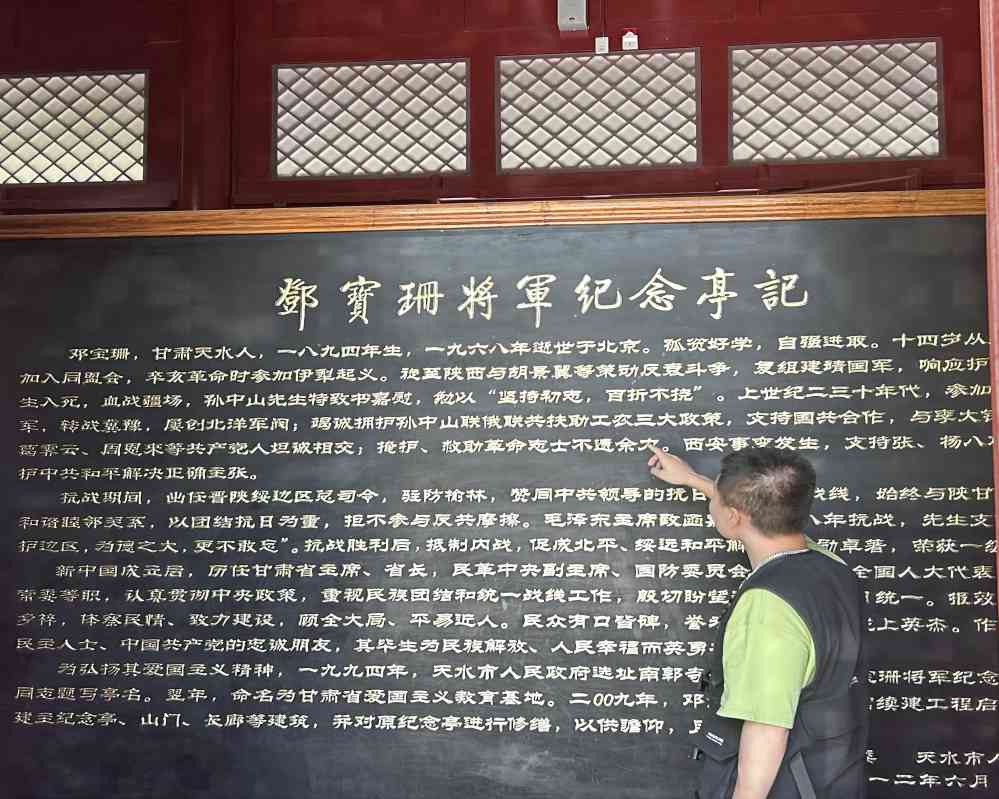 鄧寶珊將軍纪念亭記
邓宝珊，甘肃天水人，一八九四年生，一九六八年逝世于北京。孤贫好学，自强进取。十四岁从
加入同盟会，辛亥革命时参加伊犁起义。旋至陕西与胡景翼等策动反袁斗争，复组建靖国军，响应护
生入死，血战疆场，孙中山先生特致书嘉慰，勉以“坚持初志，百折不挠”。上世纪二三十年代，参加
军，转战冀豫，屡创北洋军阀；竭诚拥护孙中山联俄联共扶助工农三大政策，支持國共合作，与李大钊
葛霁云、周恩来等共产党人坦诚相交；掩护、救助革命志士不遗余力。西安事变发生，支持张、杨八
护中共和平解决正确主张。
抗战期间，出任晋陕绥边区总司令，驻防榆林，赞同中共领导的抗日 线，始终与陕甘
和谐睦邻关系，以团结抗日为重，拒不参与反共摩擦。毛泽东主席致函 八年抗战，先生支
护边区，为德之大，更不敢忘”。抗战胜利后，抵制内战，促成北平、绥远和平解 勋卓著，荣获一级
新中国成立后，历任甘肃省主席、省长，民革中央副主席、国防委员会 全国人大代表
常委等职，认真贯彻中央政策，重视民族团结和统一战线工作，殷切盼望 统一。报效
乡梓，体察民情、致力建设，顾全大局、平易近人。民众有口皆碑，誉 上英杰。作
民主人士、中国共产党的忠诚朋友，其毕生为民族解放、人民幸福而英勇
为弘扬其爱国主义精神，一九九四年，天水市人民政府选址南郭寺 珊将军纪念
同志题写亭名。翌年，命名为甘肃省爱国主义教育基地。二00九年，邓 续建工程启
建主纪念亭、山门、长廊等建筑，并对原纪念亭进行修缮，以供瞻仰，
天水市人
一二年六月